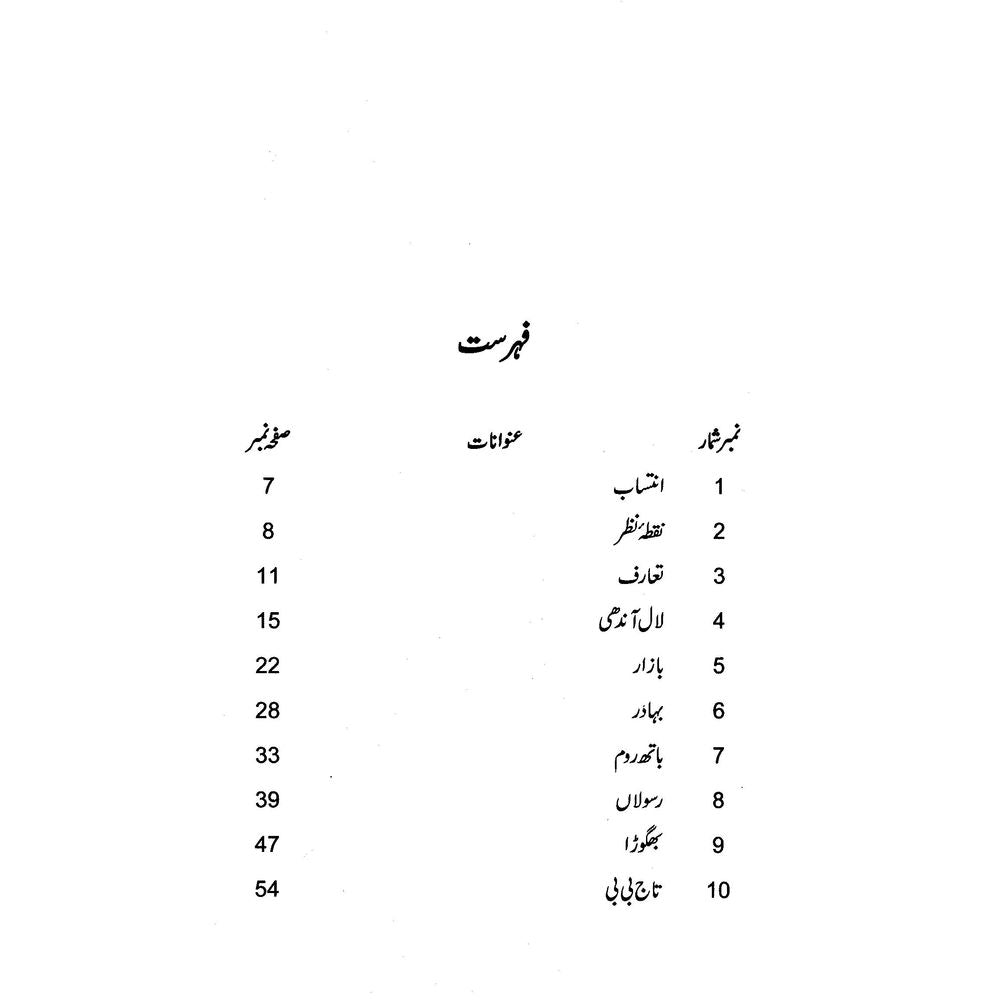 فہرست
نمبر شمار عنوانات صفحہ نمبر
1 انتساب 7
2 نقطۂ نظر 8
3 تعارف 11
4 لال آندھی 15
5 بازار 22
6 بہادر 28
7 باتھ روم 33
8 رسولاں 39
9 بھگوڑا 47
10 تاج بی بی 54